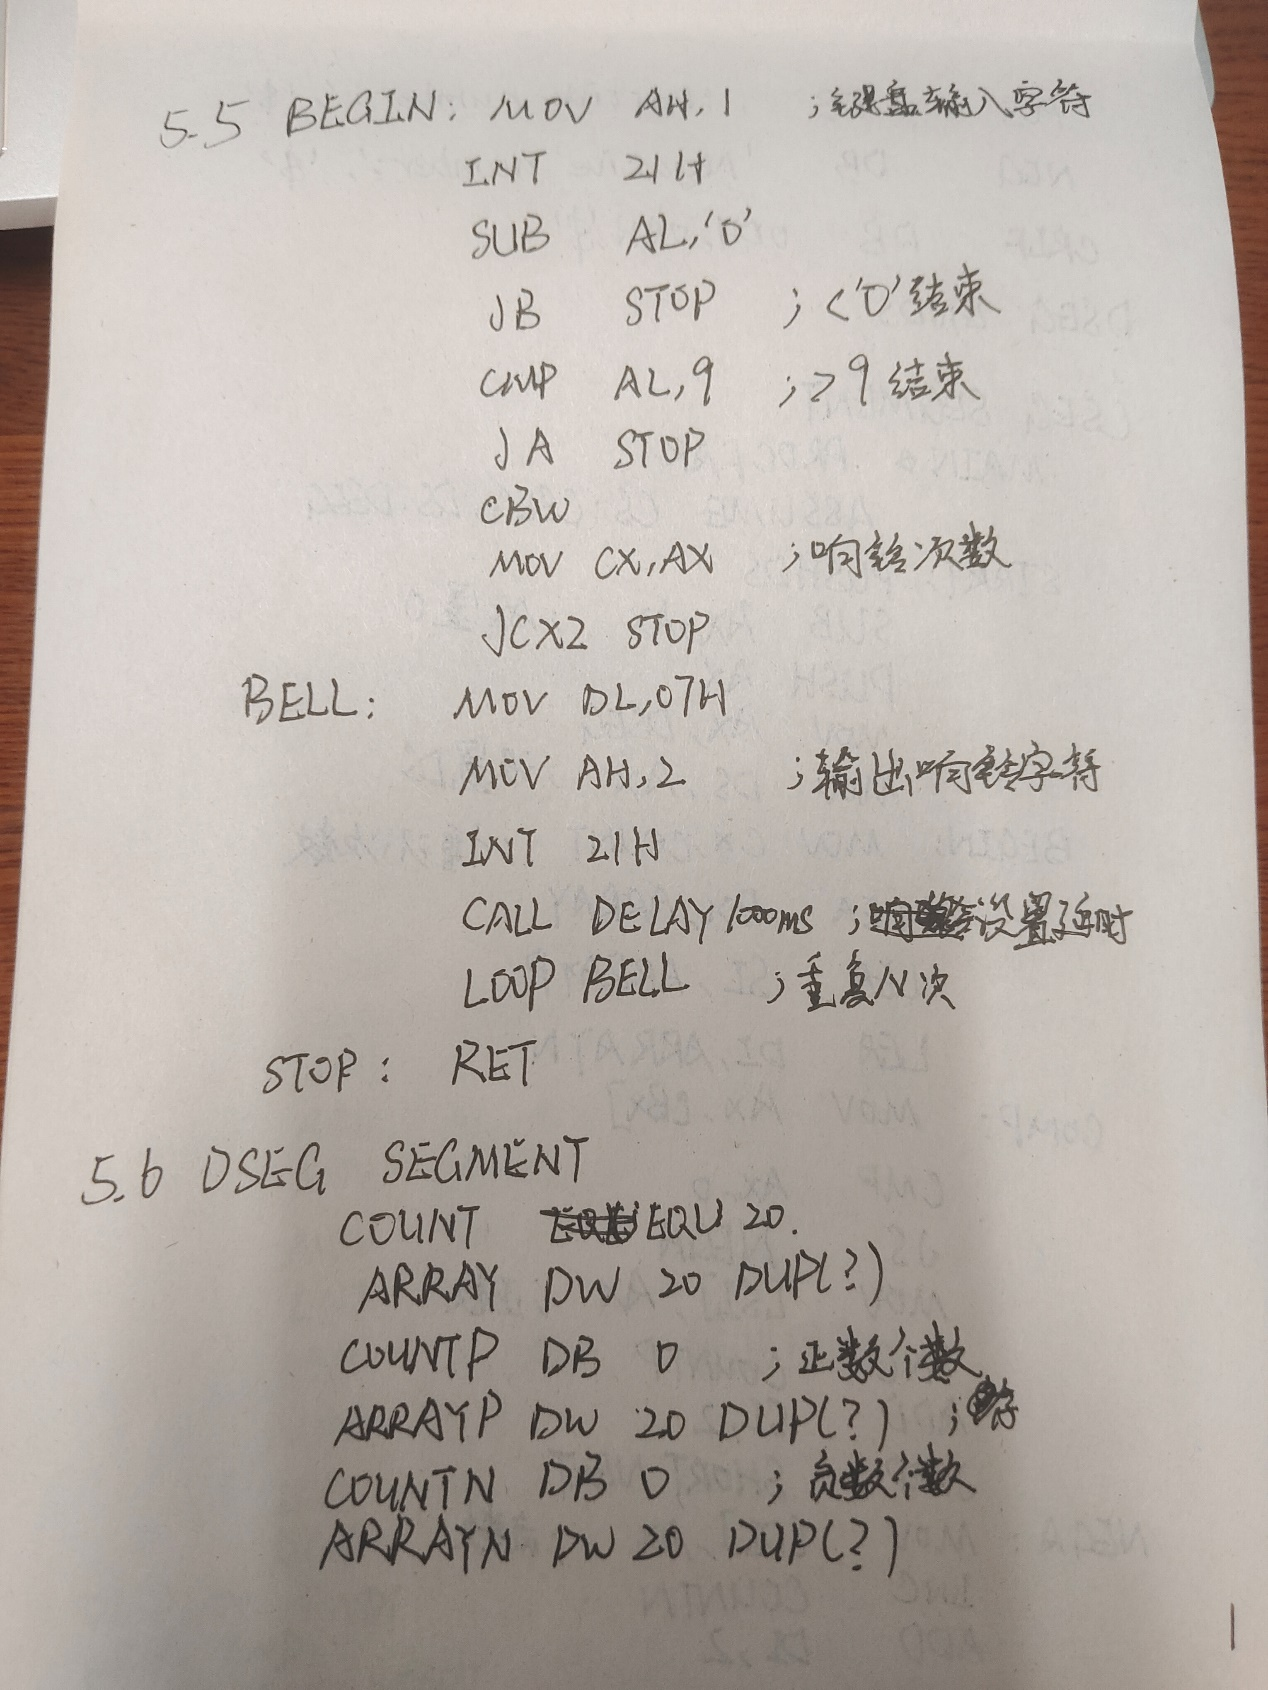 5.5 BEGIN: MOV AH,1 ;键盘输入字符
INT 21H
SUB AL,'0'
JB STOP ;<'0'结束
CMP AL,9 ;>9结束
JA STOP
CBW
MOV CX,AX ;响铃次数
JCXZ STOP
BELL: MOV DL,07H
MOV AH,2 ;输出响铃字符
INT 21H
CALL DELAY1000ms ;设置延时
LOOP BELL ;重复N次
STOP: RET
5.6 DSEG SEGMENT
COUNT EQU 20.
ARRAY DW 20 DUP(?)
COUNTP DB 0 ;正数个数
ARRAYP DW 20 DUP(?) ;
COUNTN DB 0 ;负数个数
ARRAYN DW 20 DUP(?)